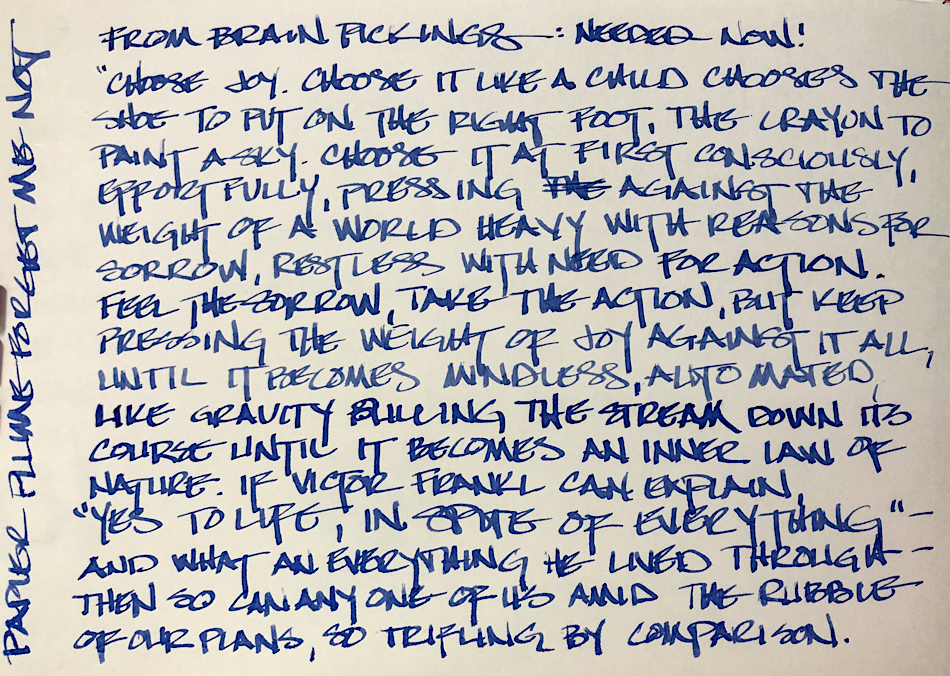 FROM BRAIN PICKINGS - : NEEDED NOW!
"CHOOSE JOY. CHOOSE IT LIKE A CHILD CHOOSES THE
SHOE TO PUT ON THE RIGHT FOOT, THE CRAYON TO
PAINT A SKY. CHOOSE IT AT FIRST CONSCIOUSLY,
EFFORTFULLY, PRESSING THE AGAINST THE
WEIGHT OF A WORLD HEAVY WITH REASONS FOR
SORROW, RESTLESS WITH NEED FOR ACTION.
FEEL THE SORROW, TAKE THE ACTION, BUT KEEP
PRESSING THE WEIGHT OF JOY AGAINST IT ALL,
UNTIL IT BECOMES MINDLESS, AUTOMATED,
LIKE GRAVITY PULLING THE STREAM DOWN ITS
COURSE UNTIL IT BECOMES AN INNER LAW OF
NATURE. IF VICTOR FRANKL CAN EXPLAIN,
"YES TO LIFE, IN SPITE OF EVERYTHING" –
AND WHAT AN EVERYTHING HE LIVED THROUGH –
THEN SO CAN ANY ONE OF US AMID THE RUBBLE
OF OUR PLANS, SO TRIFLING BY COMPARISON.
PAPIER PLUME FORGET ME NOT